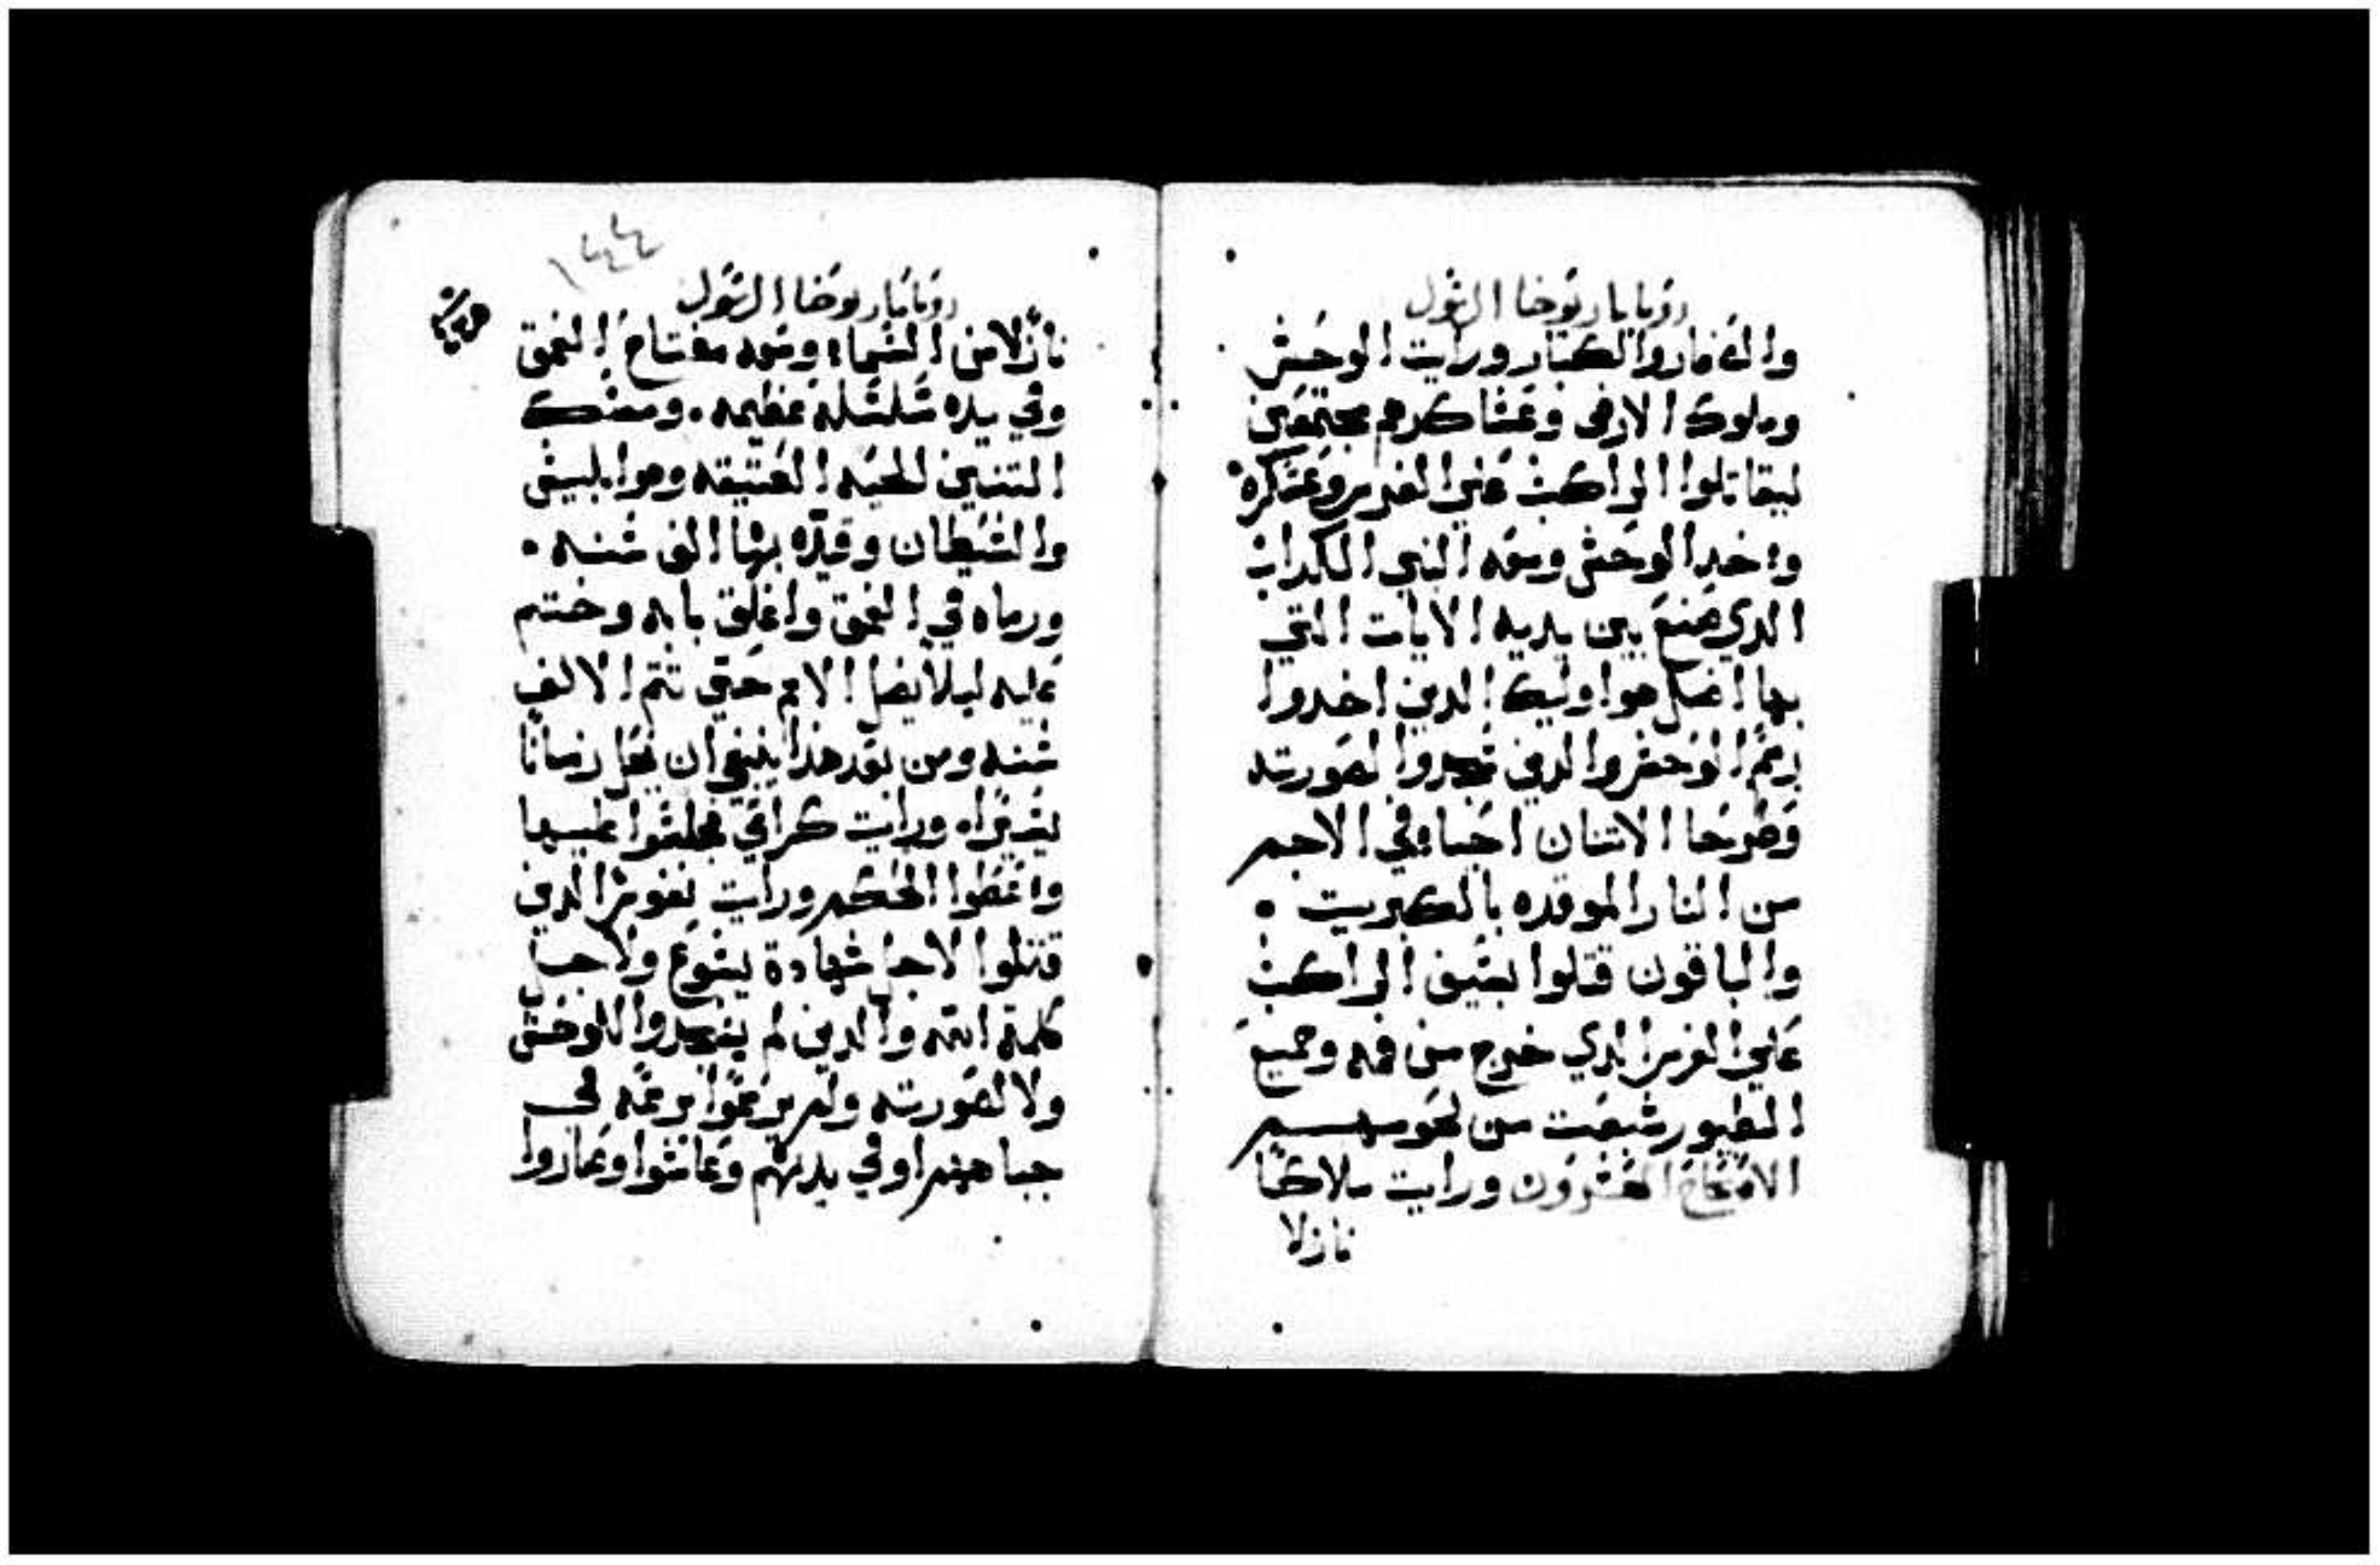 رويا يار يوحنا الرسول
والصغار والكبار ورايت الوحش
وملوك الارض وعساكرهم مجتمعين
ليقاتلوا الراكب على الفرس وعسكره
واخد الوحش ومعه النبي الكداب
الدي صنع بين يديه الايات التي
بها اضل هوا وليك الدين اخدوا
رسم الوحش والدين سجدوا لصورته
وطرحا الاتنان احيا وفي الاجم
من النار الموقده بالكبريت
والباقون قتلوا بسيف الراكب
على الفرس الدي خرج من فمه وجميع
الطيور شبعت من لحومهم
الاصحاح العشرون ورايت ملاكا
نازلا
١٤٤
رويا يار يوحنا الرسول
نازلا من السماء ومعه مفتاح العمق
وفي يده سلسله عظيمه . ومسك
التنين الحيه العتيقه وهو ابليس
والشيطان وقيده بها الف سنه .
ورماه في العمق واغلق بابه وختم
عليه ليلا يضل الامم حتى تتم الالف
سنه ومن بعد هدا ينبغي ان يحل زمانا
يسيرا ورايت كراسي فجلسوا عليها
واعطوا الحكم ورايت نفوس الدين
قتلوا لاجل شهادة يسوع ولاجل
كلمة الله والدين لم يسجدوا للوحش
ولا لصورته ولم يرسموا برسمه في
جباههم او في يديهم وعاشوا وصاروا